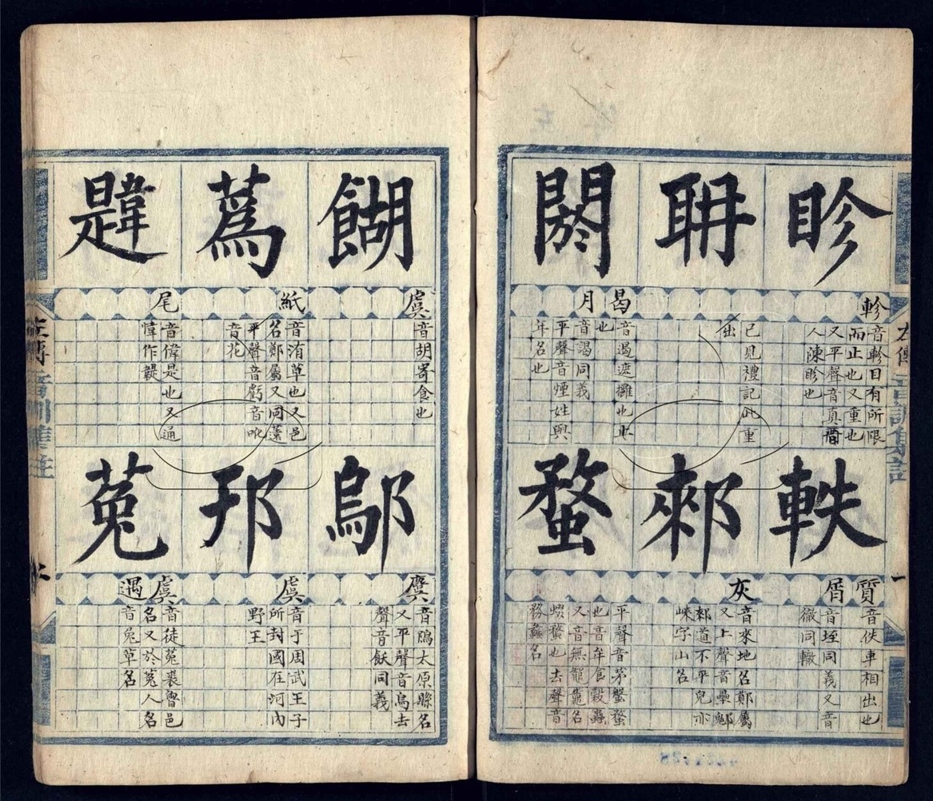 眕
軫
音軫目有所限
而止也又重也
又平聲音真
人陳眕也
聃
已見禮記此重
出
閼
曷
月
音遏遮攔也止
也
音謁同義
平聲音煙姓與
年名也
軼
質
屑
音佚車相出也
音垤同義又音
徹同轍
郲
灰
音來地名鄭屬
又上聲音壘
郲道不平皃亦
崍字山名
蝥
平聲音茅盤蝥
也音牟食穀蟲
又音無
蝥也去聲音
務螽名
餬
虞
音胡寄食也
蒍
紙
音洧草也又邑
名鄭屬又同薳
平聲音虧音
音花
韙
尾
音偉是也又通
愇作韙
鄔
麌
音隝太原縣名
又平聲音烏去
聲音飫同義
邘
虞
音于周武王子
所封國在河內
野王
菟
虞
遇
音徒菟裘魯邑
名又於菟人名
音兔草名